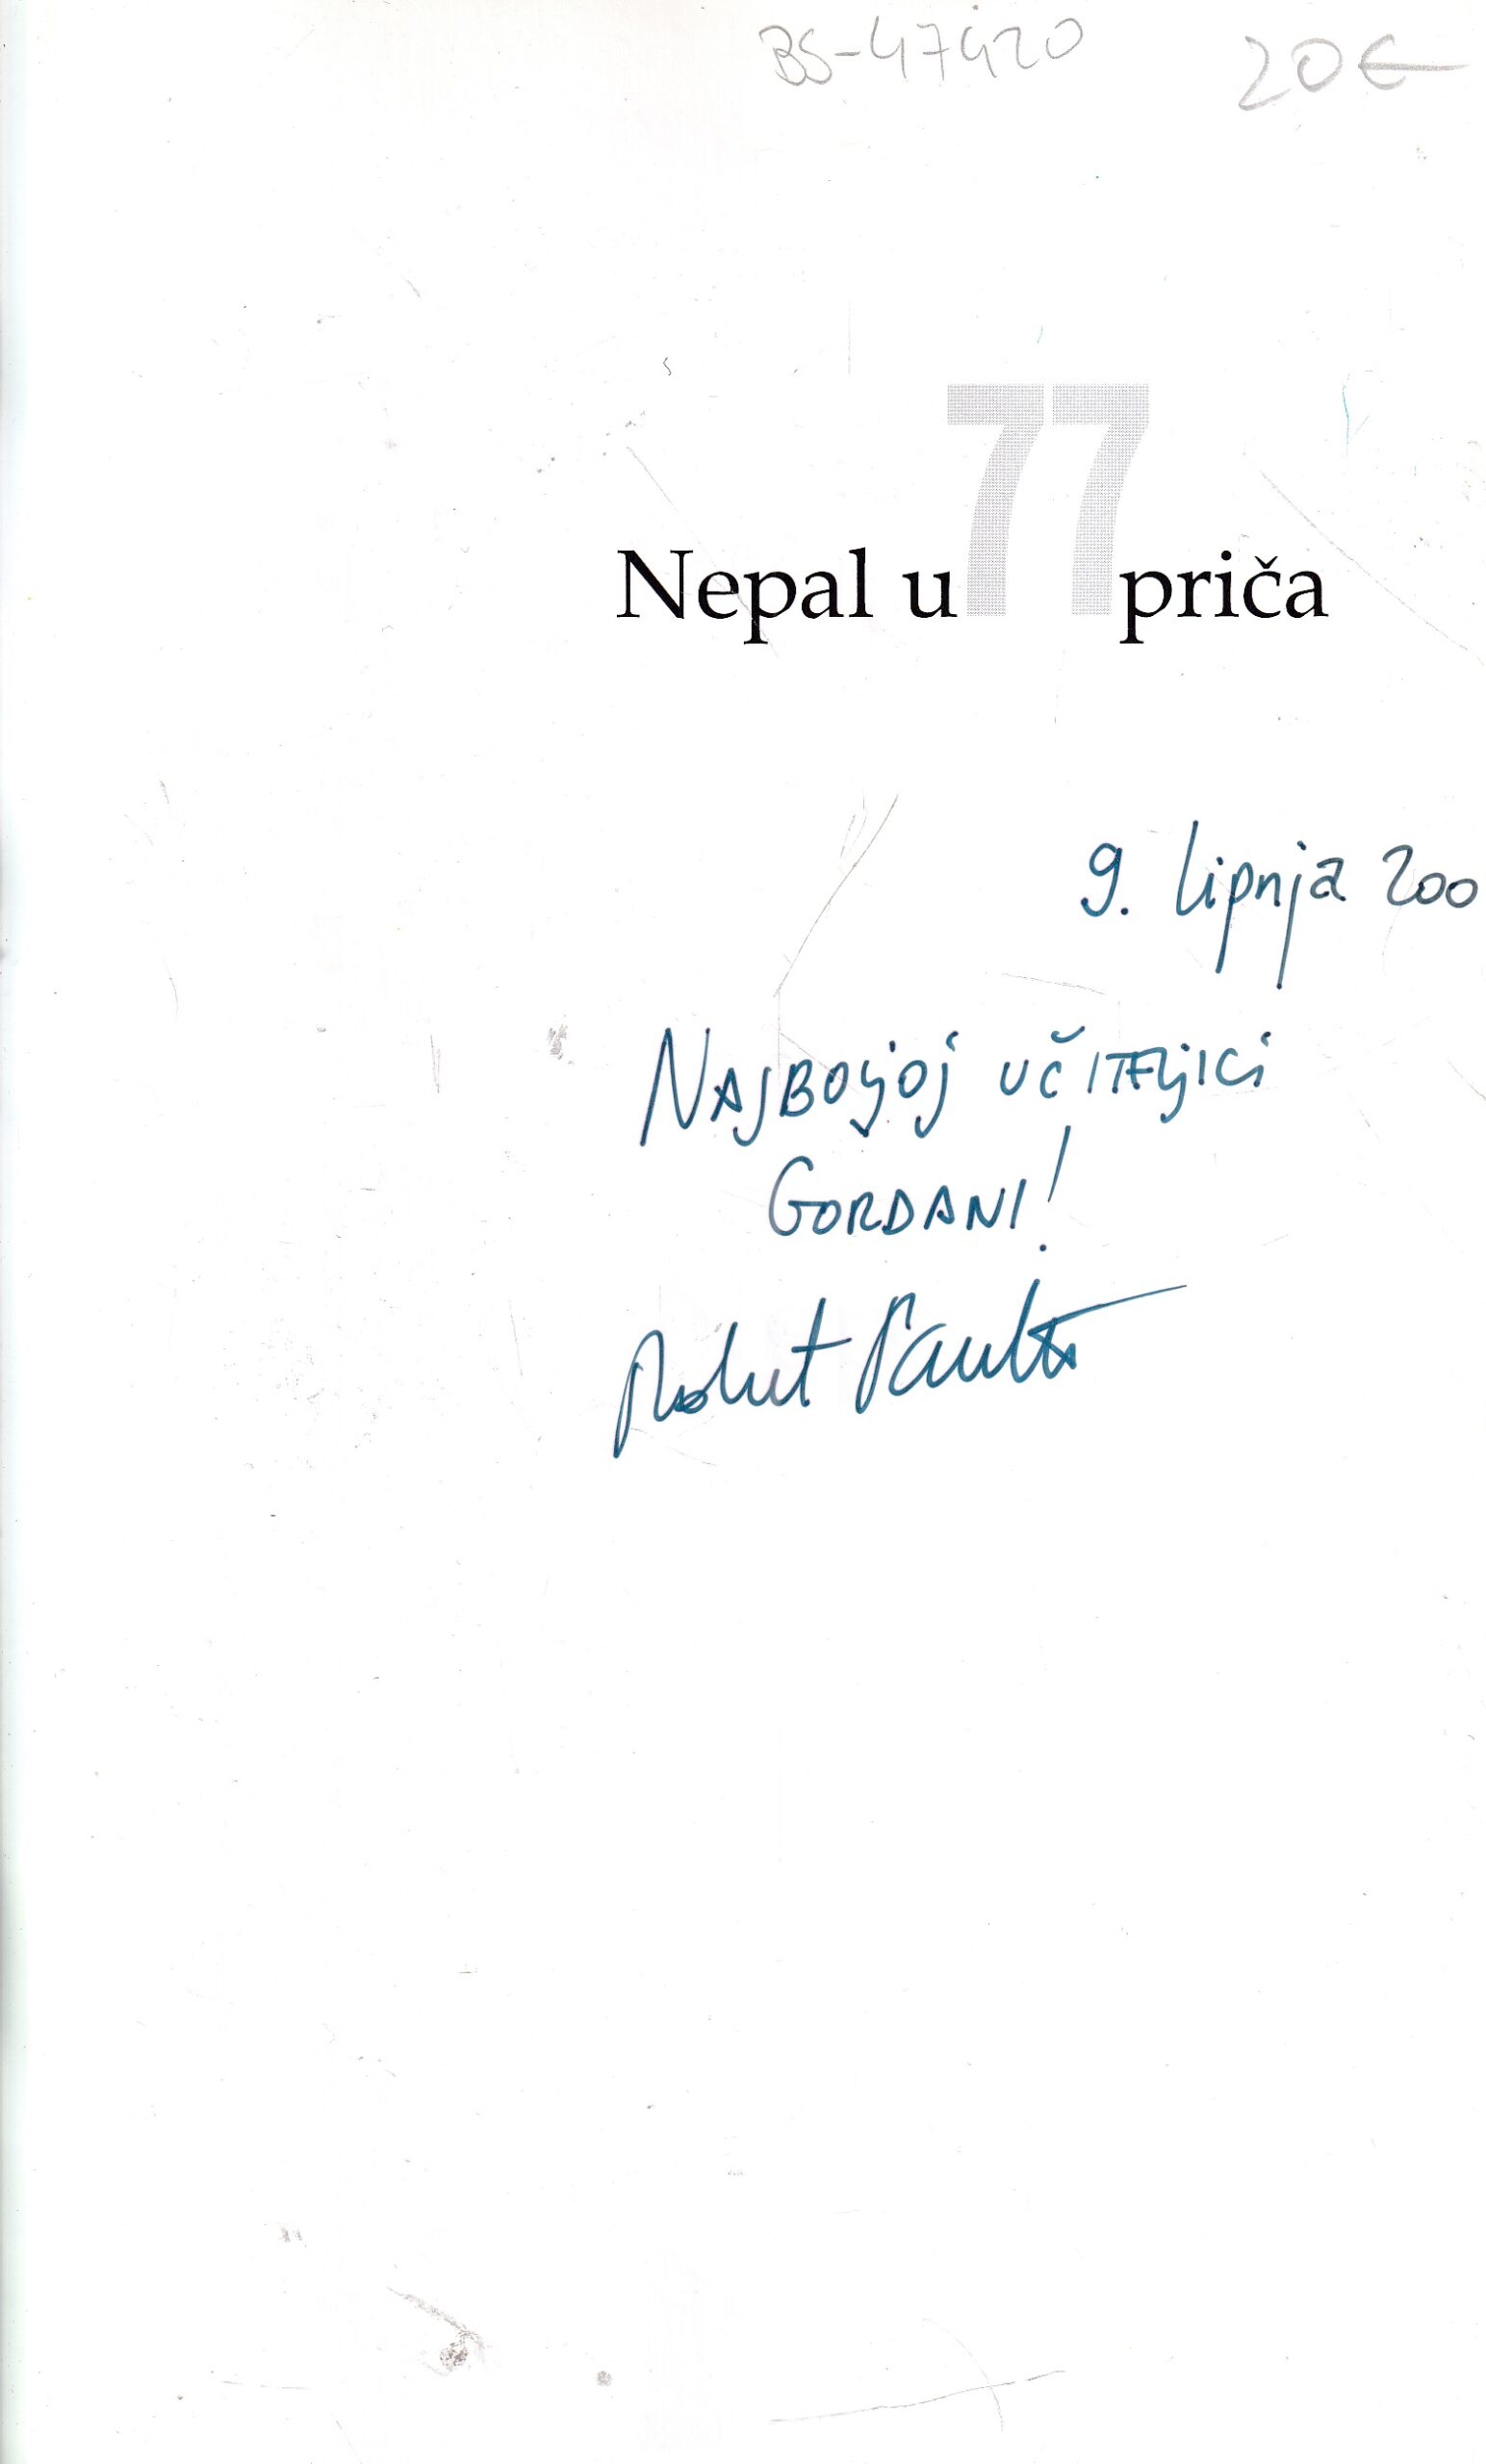 BS-47420 20€
Nepal u 77 priča
9. lipnja 200
NAJBOLJOJ UČITELJICI
GORDANI!
Robert